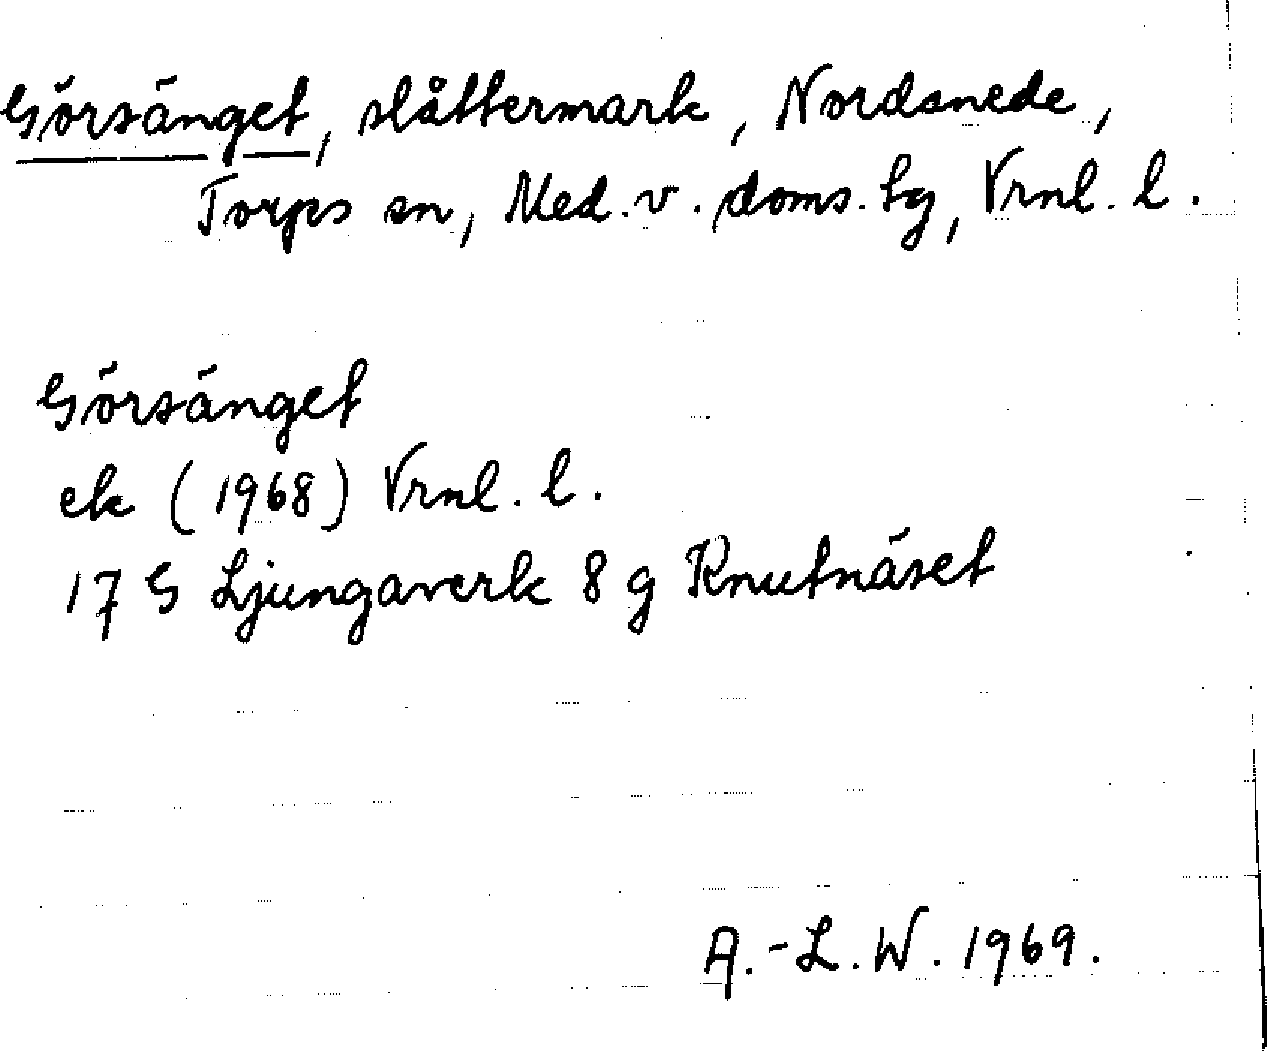 Görsänget, slåttermark, Nordanede,
Torps sn, Med. v. doms. hg, Vrnl. l.
Görsänget
ek (1968) Vrnl. l.
17 G Ljungaverk 8 g Knutnäset
A.-L. W. 1969.